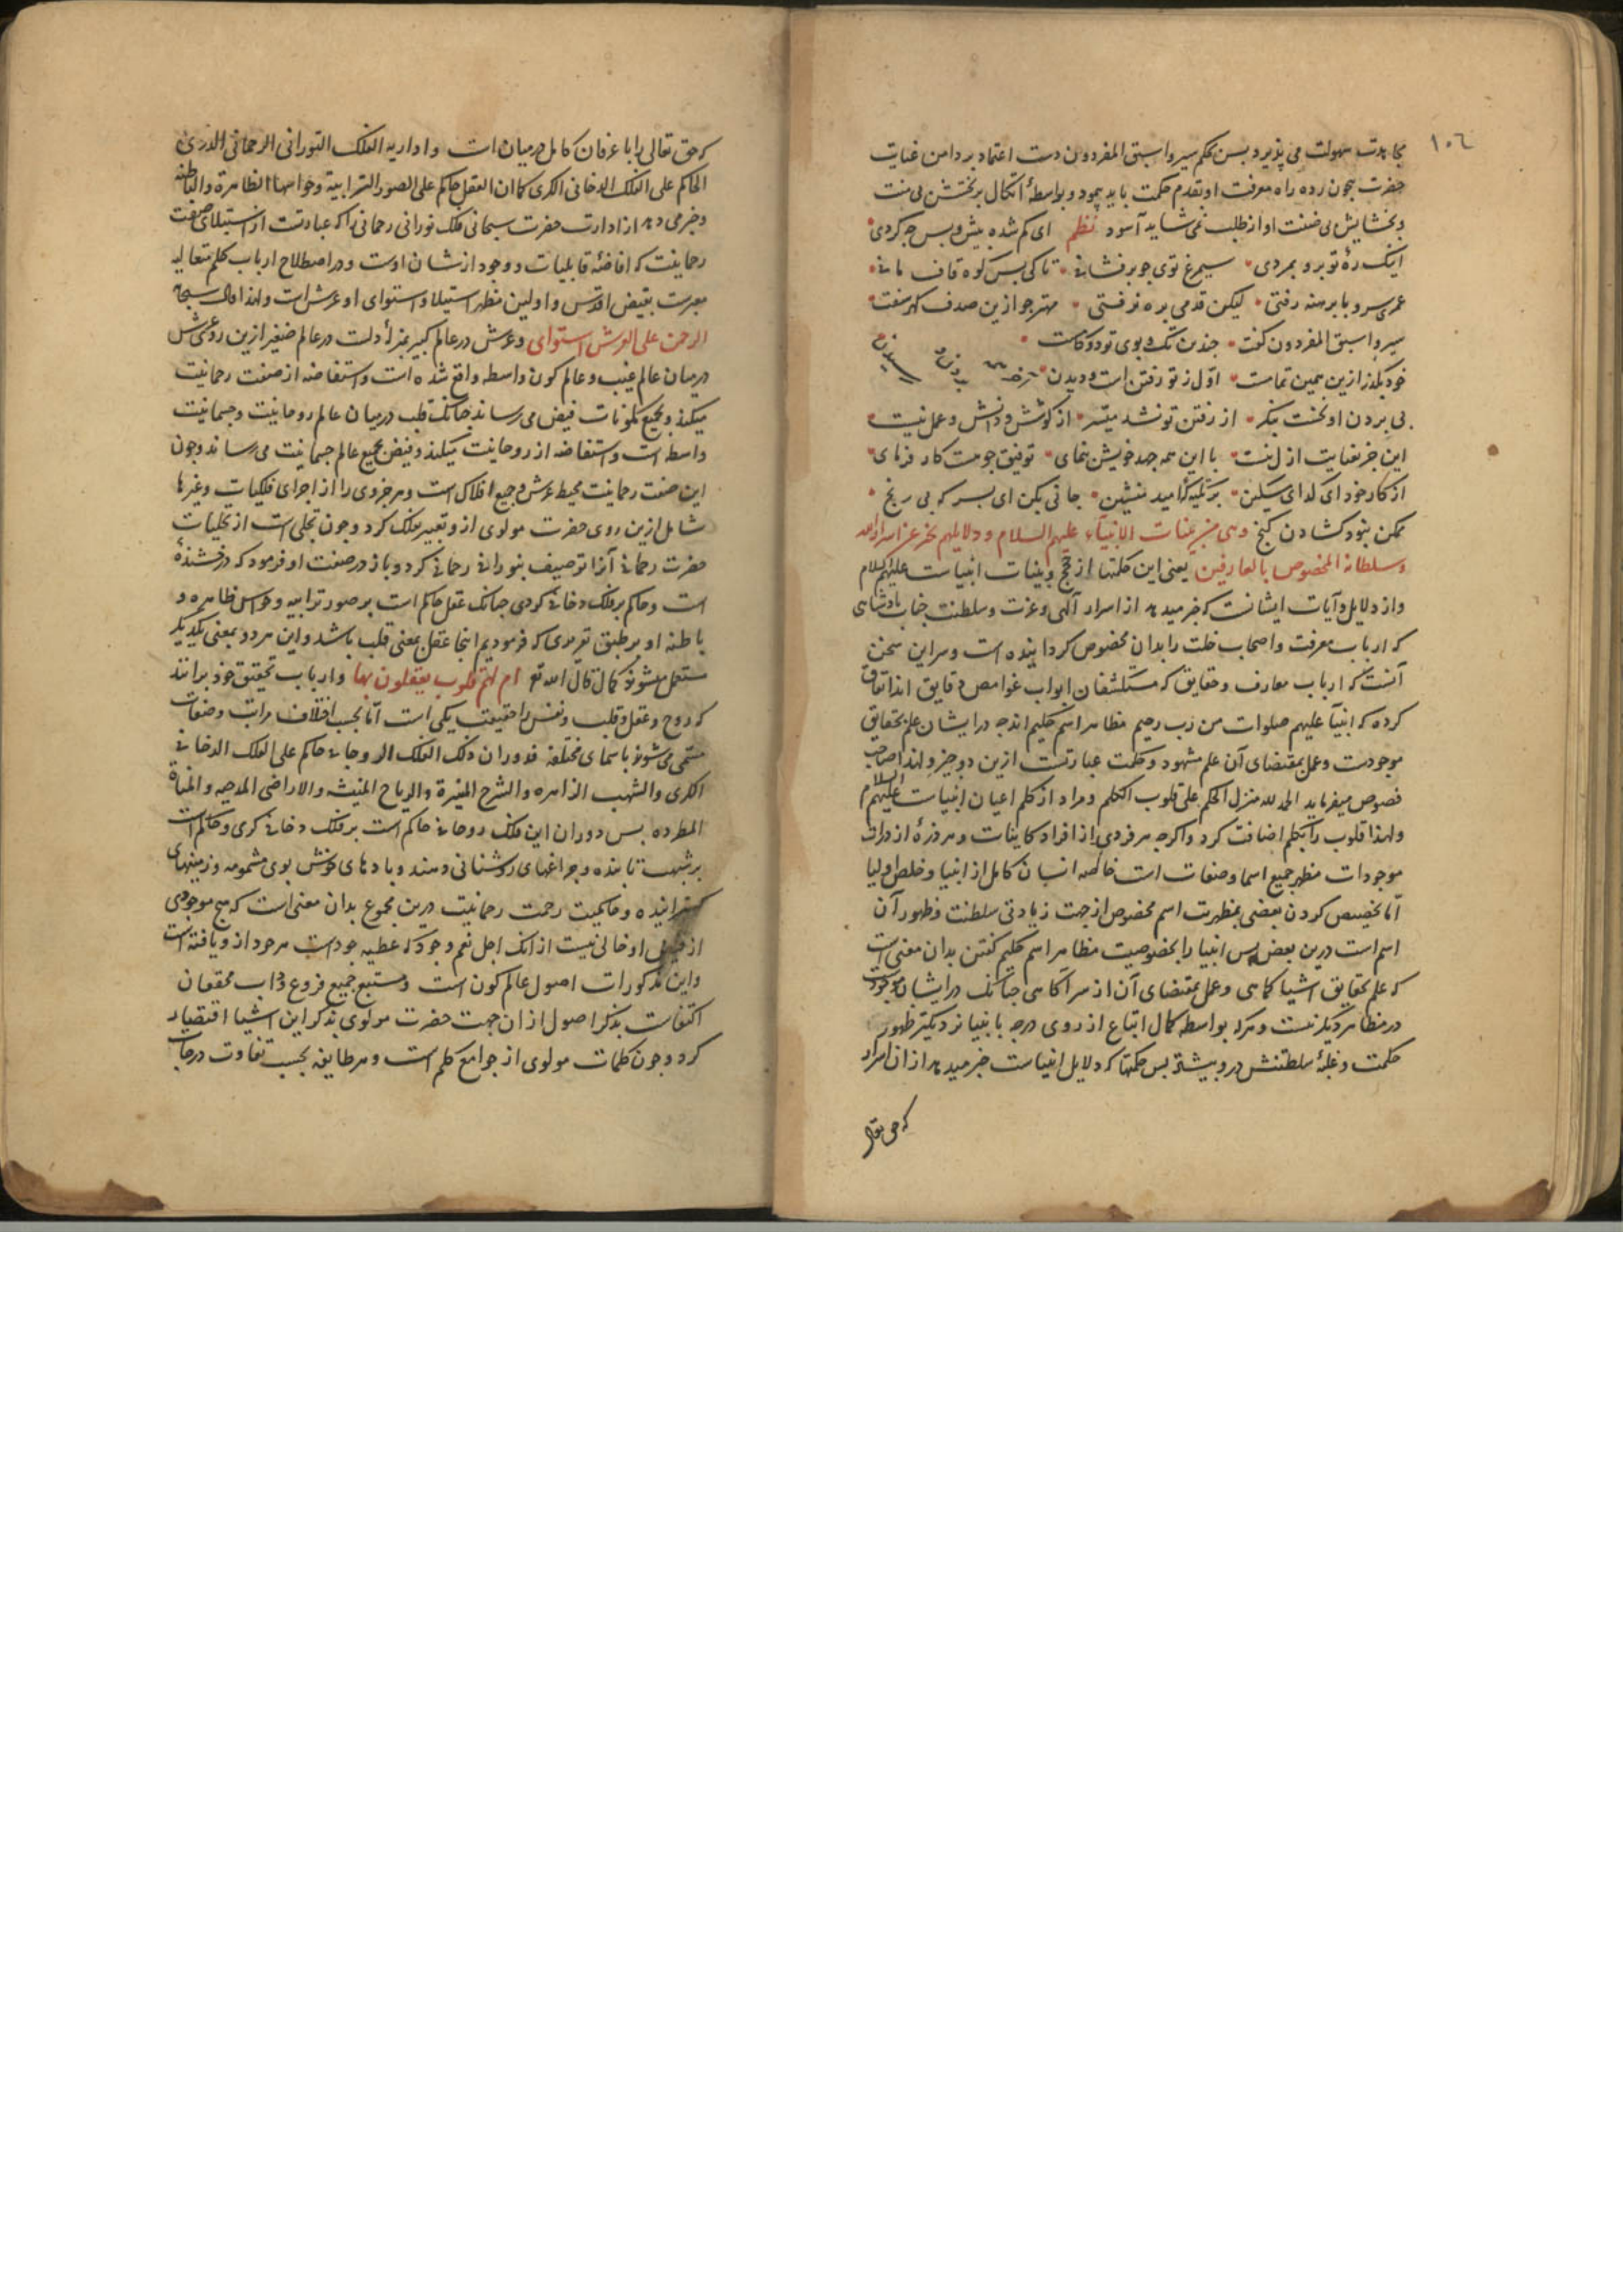 ١٠٦
مجاهدت سهولت می پذیرد پس بحکم سیروا سبق المفردون دست اعتماد بر دامن عنایت
حضرت بیچون زده راه معرفت او بقدم حکمت باید پیمود و بواسطهٔ اتکال بر بخشش بی منت
و بخشایش بی ضنت او از طلب نمی شاید آسود نظم ای کم شده بیش و پس چه کردی
اینک ره تو برو بمردی سیمرغ توی چو برفشانی تا کی پس کوه قاف مانی
عمری سر و پا برهنه رفتی لیکن قدمی بره نرفتی مهتر چو ازین صدف گهر سفت
سیروا سبق المفردون گفت چندین تک و پوی تو دوکامست
خود بگذر ازین همین تمامست اول ز تو رفتن است و دیدن
بی بردن او نخست بنگر از رفتن تو نشد میسر از کوشش و دانش و عمل نیست
این جز بعنایت ازل نیست با این همه جهد خویش بنمای توفیق چو هست کار فرمای
از کار خود ای گدای مسکین بر تکیه گه امید منشین جانی بکن ای پسر که بی رنج
ممکن نبود گشادن گنج وهی من بینات الانبیآء علیهم السلام و دلایلهم تخبر عن اسرار الله
وسلطانه المخصوص بالعارفین یعنی این حکمتها از حجج و بینات انبیاست علیهم السلام
و از دلایل و آیات ایشانست که خبر میدهد از اسرار آلهی و عزت و سلطنت جناب پادشاهی
که ارباب معرفت و اصحاب خلت را بدان مخصوص گردانیده است و سر این سخن
آنست که ارباب معارف و حقایق که مستکشفان ابواب غوامص دقایق اند اتفاق
کرده که انبیآ علیهم صلوات من رب رحیم مظاهر اسم حکیم اند چه در ایشان علم بحقایق
موجودست و عمل بمقتضای آن علم مشهود و حکمت عبارتست ازین دو چیز و لهذا صاحب
فصوص میفرماید الحمد لله منزل الحکم علی قلوب الکلم و مراد از کلم اعیان انبیاست علیهم السلام
و لهذا قلوب را بکلم اضافت کرد و اگرچه هر فردی از افراد کاینات و هر ذرهٔ از ذرات
موجودات مظهر جمیع اسما و صفات است خاصه انسان کامل از انبیا و خلص اولیا
اما تخصیص کردن بعضی بمظهریت اسم مخصوص از جهت زیادتی سلطنت و ظهور آن
اسم است درین بعض پس انبیا را بخصوصیت مظاهر اسم حکیم گفتن بدان معنی است
که علم بحقایق اشیا کماهی و عمل بمقتضای آن از سر آگاهی چنانک در ایشان موجودست
در مظاهر دیگر نیست و هرکه بواسطه کمال اتباع از روی درجه بانبیا نزدیکتر ظهور
حکمت و غلبهٔ سلطنتش درو بیشتر پس حکمتها که دلایل انبیاست خبر میدهد از ان اسرار
که حق تعالی
که حق تعالی را با عرفان کامل در میان است و ادارته الفلک النورانی الرحمانی الدری
الحاکم علی الفلک الدخانی الکری کما ان العقل حاکم علی الصور الترابیة و حواسها الظاهرة والباطنه
و خبر می دهد از ادارت حضرت سبحانی فلک نورانی رحمانی را که عبارتست از استیلای صفت
رحمانیت که افاضهٔ قابلیات و وجود از شان اوست و در اصطلاح ارباب حکم متعالیه
معبرست بفیض اقدس و اولین مظهر استیلا و استوای او عرش است و لهذا قال سبحانه
الرحمن علی العرش استوای و عرش در عالم کبیر بمنزلهٔ دلست در عالم صغیر ازین رو عرش
در میان عالم غیب و عالم کون واسطه واقع شده است و استفاضه از صفت رحمانیت
میکند و بجمیع مکونات فیض می رساند چنانک قلب در میان عالم روحانیت و جسمانیت
واسطه است و استفاضه از روحانیت میکند و فیض بجمیع عالم جسمانیت می رساند و چون
این صفت رحمانیت محیط عرش و جمیع افلاک است و هر جزوی را از اجرای فلکیات و غیرها
شامل ازین روی حضرت مولوی ازو تعبیر بفلک کرد و چون تجلی است از تجلیات
حضرت رحمانی آنرا توصیف بنورانی رحمانی کرد و باز در صفت او فرمود که درخشنده
است و حاکم بر فلک دخانی کروی چنانک عقل حاکم است بر صور ترابیه و حواس ظاهره و
باطنه او بر طبق تقریری که فرمودیم اینجا عقل بمعنی قلب باشد و این هر دو بمعنی یکدیگر
مستعمل میشوند کما قال الله تع ام لهم قلوب یعقلون بها و ارباب تحقیق خود برانند
که روح و عقل و قلب و نفس را حقیقت یکی است اما بحسب اختلاف مراتب و صفات
مسمی می شوند باسمای مختلفه فدوران ذلک الفلک الروحانی حاکم علی الفلک الدخانی
الکری والشهب الزاهره والسُّرج المنیرة والریاح المنیثه والاراضی المدحیه والمیاه
المطرده پس دوران این فلک روحانی حاکم است بر فلک دخانی کری و حاکم است
بر شهب تابنده و چراغهای روشنائی دهنده و بادهای خوش بوی مشمومه و زمینهای
گسترانیده و حاکمیت رحمت رحمانیت درین مجموع بدان معنی است که هیچ موجودی
از فیض او خالی نیست از انک اجل نعم وجود که عطیه جود است هر موجود ازو یافته است
و این مذکورات اصول عالم کون است و مستتبع جمیع فروع و داب محققان
اکتفاست بذکر اصول از ان جهت حضرت مولوی بذکر این اشیا اقتصار
کرد و چون کلمات مولوی از جوامع کلم است و هر طایفه بحسب تفاوت درجات